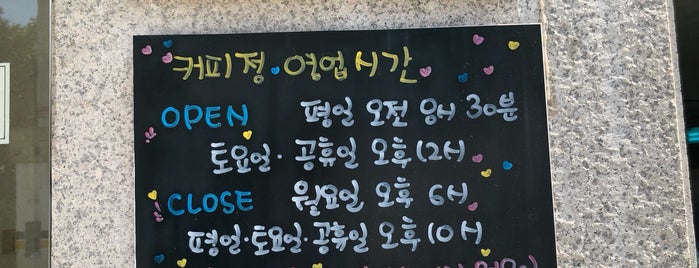 커피정 영업시간
OPEN 평일 오전 8시 30분
토요일·공휴일 오후 12시
CLOSE 월요일 오후 6시
평일·토요일·공휴일 오후 10시